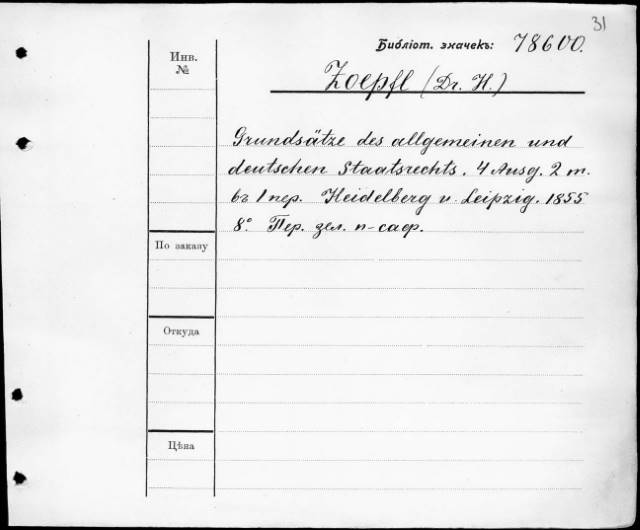 31
Библіот. значекъ: 78600.
Инв.
№
Zoepfl (Dr. H.)
Grundsätze des allgemeinen und
deutschen Staatsrechts. 4 Ausg. 2 т.
въ 1 пер. Heidelberg u. Leipzig. 1855
8º. Пер. зел. п-саф.
По заказу
Откуда
Цѣна